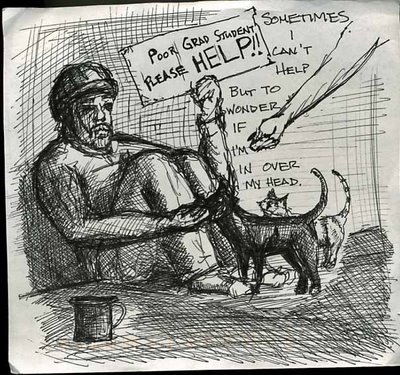 POOR GRAD STUDENT
PLEASE HELP!!
SOMETIMES
I
CAN'T
HELP
BUT TO
WONDER
IF
I'M
IN OVER
MY HEAD.